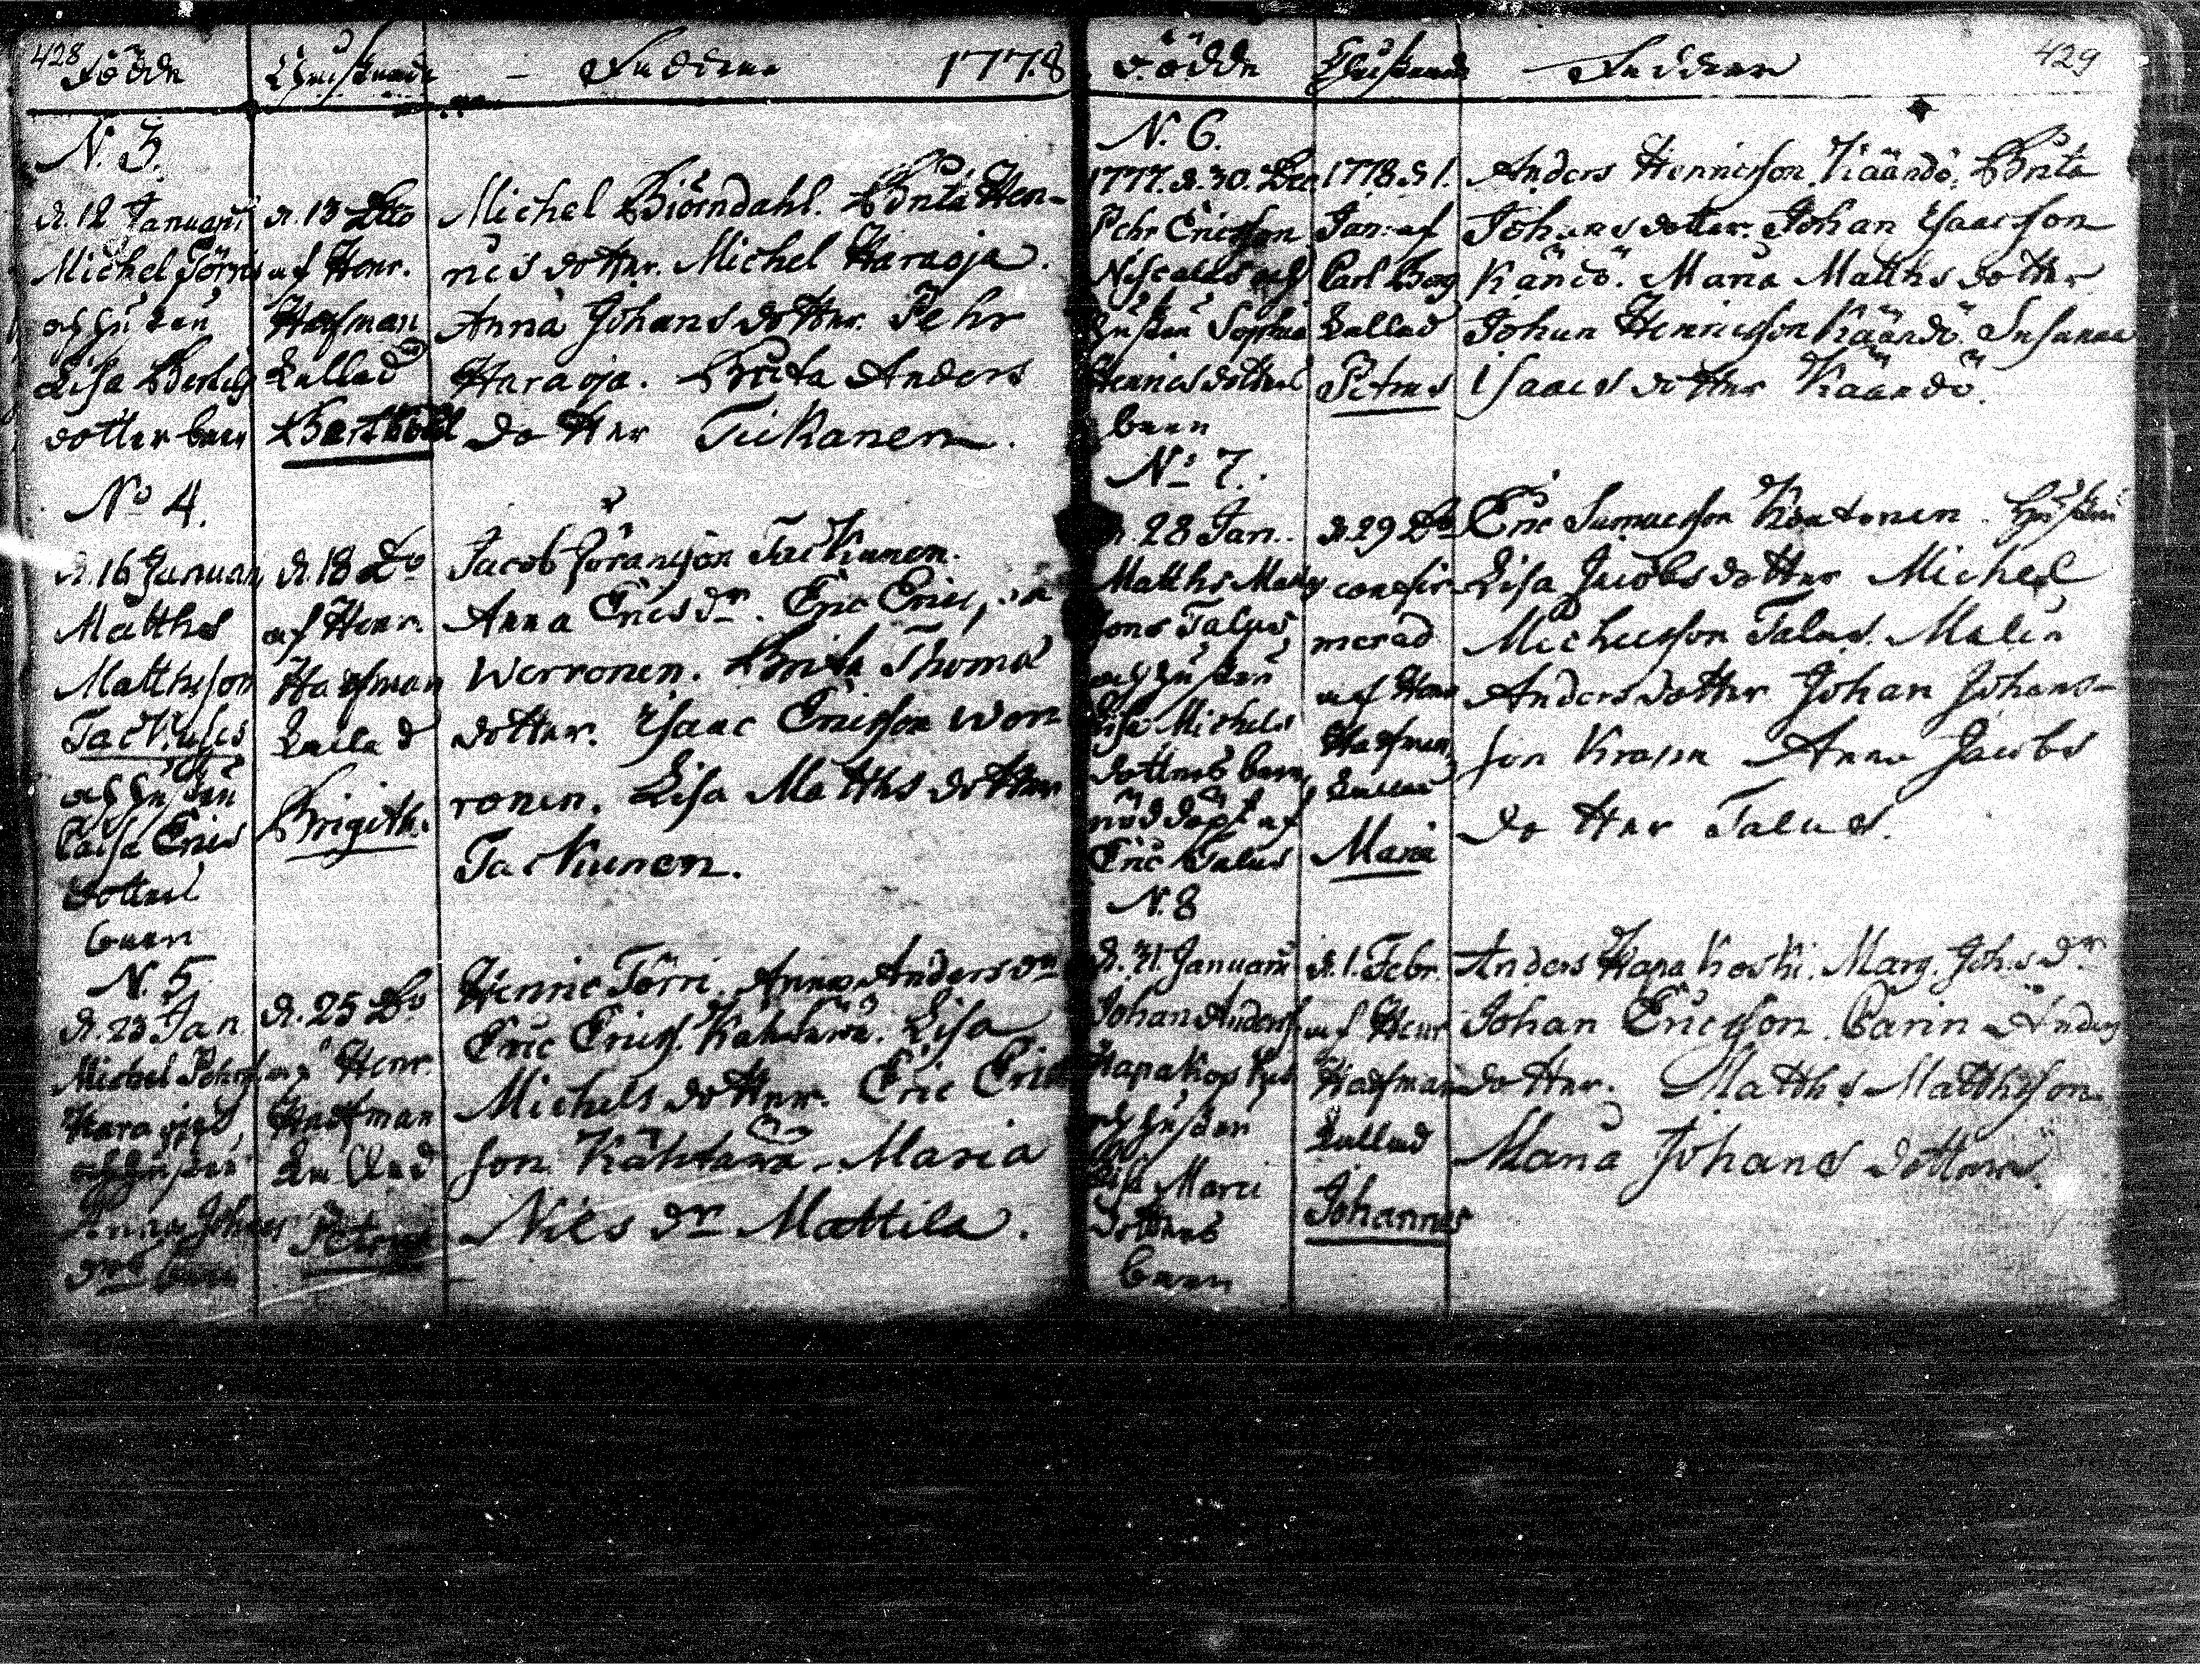 428
Födde
Christnade
Faddrar
1778
N. 3.
d. 12 Januarii
Michel Törris
och hustru
Lisa Bertils
dotter barn
d. 13 Dito
af Henr.
Hafman
kallad
Barthold
Michel Biörndahl. Brita Hen-
rics dotter. Michel Haraoja.
Anna Johansdotter. Pehr
Haraoja. Brita Anders
dotter Tickanen.
No 4.
d. 16 Januari
Matths
Mattheson
Tackuses
och hustru
Caisa Erics
dotters
barn
d. 18 Do
af Henr.
Hafman
kallad
Brigitha
Jacob Göransson Tackunen.
Anna Ericsdr. Eric Erics
Werronen. Brita Thomas
dotter. Isaac Ericsson Wer
ronen. Lisa Matthsdotter
Tackunen.
N. 5
d. 23 Jan
Michel Pehrs
Haraojas
och hustru
Anna Johans
drs barn
d. 25 Do
af Henr.
Hafman
kallad
Petrus
Henric Törri. Anna Andersdr
Eric Erics. Kähtävä. Lisa
Michels dotter. Eric Eric
son Kähtävä. Maria
Nils dr Mattila.
429
Födde
Christnade
Faddrar
N. 6.
1777. d. 30. Dec
Pehr Ericsson
och
hustru Sophia
Henricsdotters
barn
1778 d 1.
Jan: af
Carl Borg
kallad
Petrus
Anders Henricsson Käändö, Brita
Johansdotter. Johan Isaacsson
Kändö. Maria Matthsdotter
Johan Henricsson Käändö. Susanna
Isaacsdotter Käändö.
No 7.
d. 28 Jan.
Matths Matths
sons Talus
och hustru
Lisa Michels
dotters barn,
nöddöpt af
Eric Talus
d. 29 Do
confir-
merad
af Henr
Hafman,
kallad
Maria
Eric Samuelsson Kontonen. Hustru
Lisa Jacobsdotter Michel
Michelsson Talus. Malin
Andersdotter Johan Johans-
son Krapu Anna Jacobs
dotter Talus.
N. 8
d. 31. Januarii
Johan Anders
Hapakoskis
och hustru
Lisa Marci
dotters
barn
d. 1. Febr.
af Henr
Hafman
kallad
Johannes
Anders Hapakoski. Marg. Joh.s dr.
Johan Ericsson. Carin Anders
dotter. Matths Matthsson
Maria Johans dotter.